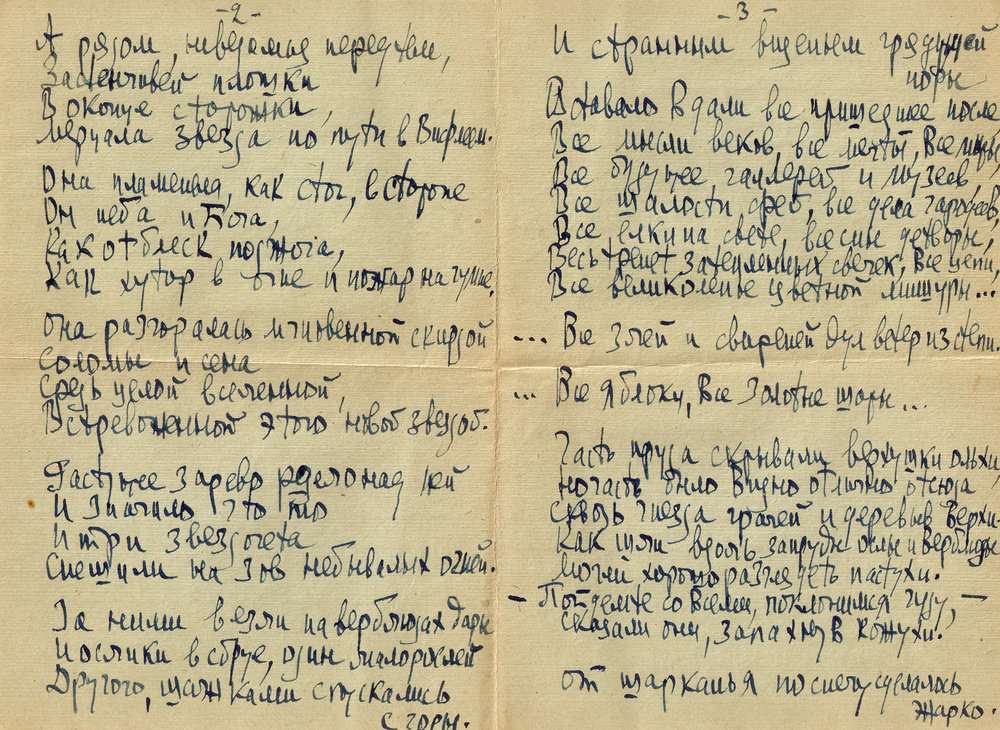 -2-
А рядом, неведомая перед тем,
Застенчивей плошки
В оконце сторожки,
Мерцала звезда по пути в Вифлеем.
Она пламенела, как стог, в стороне
От неба и Бога,
Как отблеск поджога,
Как хутор в огне и пожар на гумне.
Она разгоралась мгновенной скирдой
Соломы и сена
Средь целой вселенной,
Встревоженной этою новой звездой.
Растущее зарево рдело над ней
И значило что то
И три звездочета
Спешили на зов небывалых огней.
За ними везли на верблюдах дары
И ослики в сбруе, один малорослей
Другого, шажками спускались
с горы.
-3-
И странным виденьем грядущей
поры
Вставало вдали все пришедшее после
Все мысли веков, все мечты, все миры,
Все будущее галлерей и музеев,
Все шалости фей, все дела чародеев,
Все елки на свете, все сны детворы,
Весь трепет затепленных свечек, все цепи,
Все великолепье цветной мишуры...
... Все злей и свирепей дул ветер из степи.
... Все яблоки, все золотые шары...
Часть пруда скрывали верхушки ольхи,
Но часть было видно отлично отсюда
Сквозь гнезда грачей и деревьев верхи.
Как шли вдоль запруды ослы и верблюды
Могли хорошо разглядеть пастухи.
- Пойдемте со всеми, поклонимся чуду, -
Сказали они, запахнув кожухи.
От шарканья по снегу сделалось
жарко.